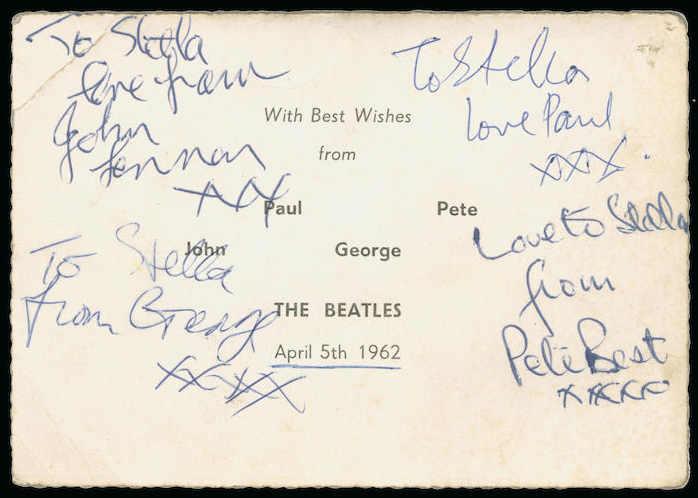 To Stella
love from
John
Lennon
XXX
To Stella
Love Paul
XXX.
With Best Wishes
from
Paul Pete
John George
THE BEATLES
April 5th 1962
To Stella
from George
XXXX
Love to Stella
from
Pete Best
xxxxx